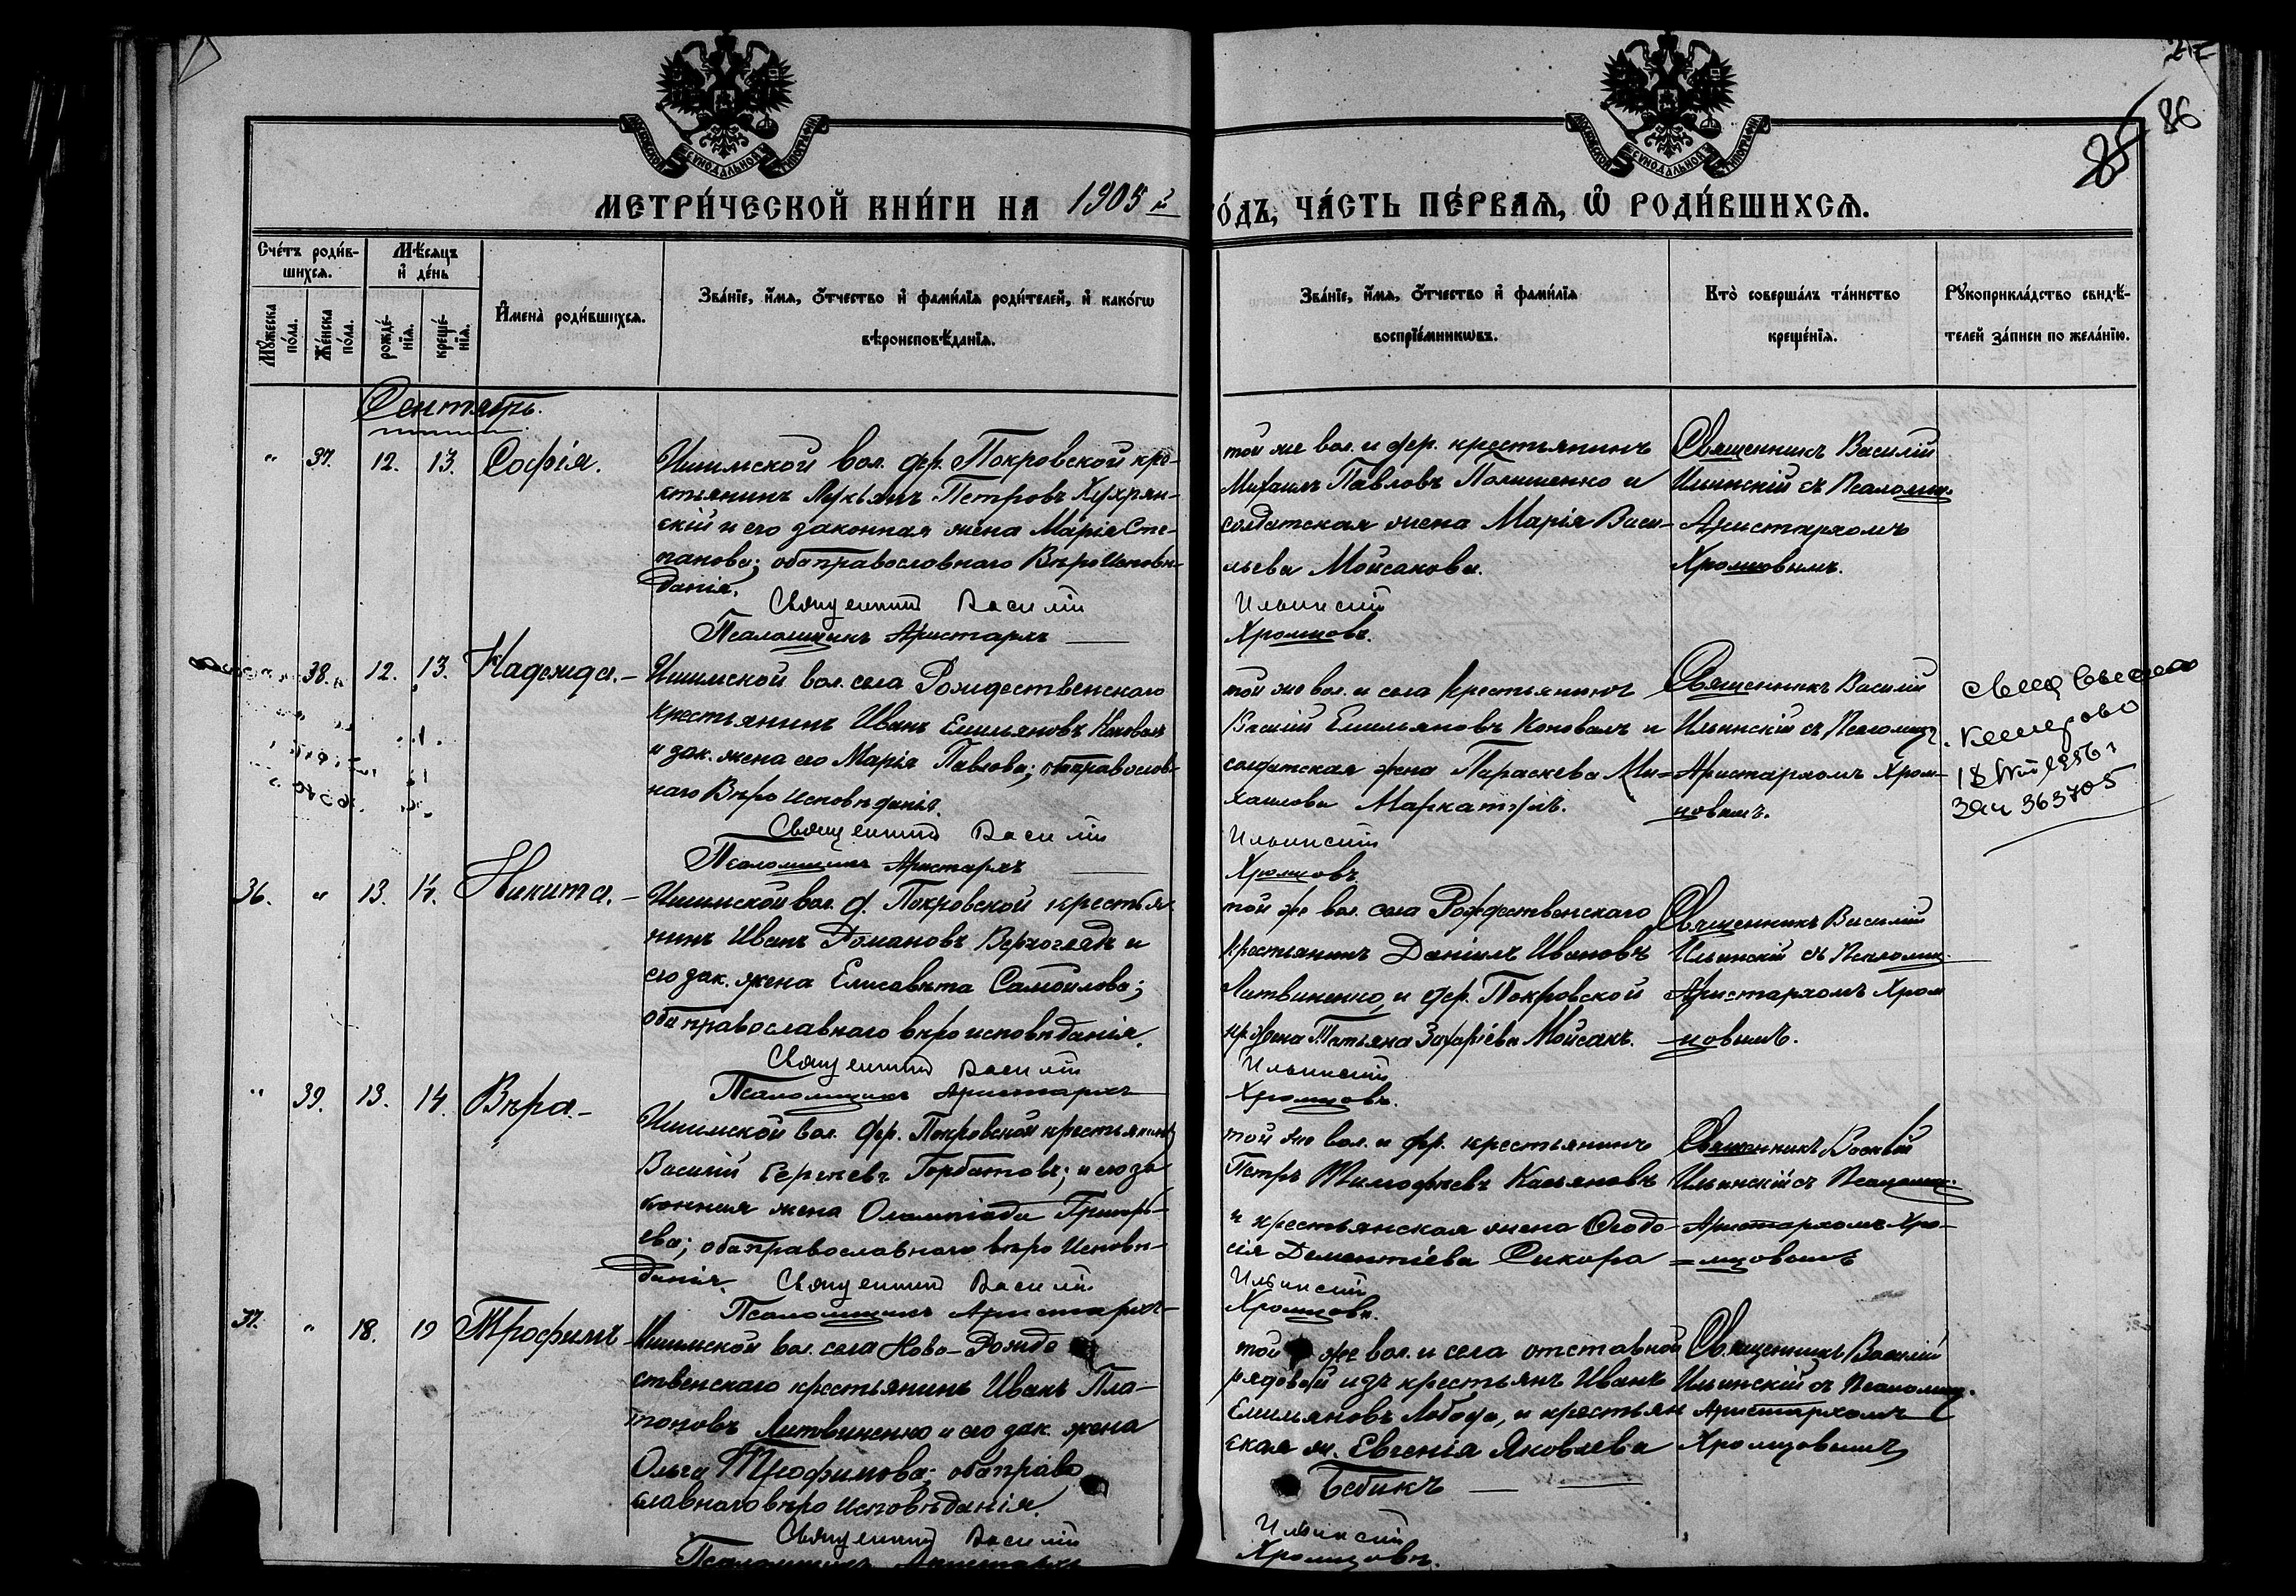 27
86
85
МОСКОВСКОЙ СѴНОДАЛЬНОЙ ТИПОГРАФІИ
МОСКОВСКОЙ СѴНОДАЛЬНОЙ ТИПОГРАФІИ
МЕТРИ́ЧЕСКОЙ КНИ́ГИ НА 1905 й
ГО́ДЪ, ЧА́СТЬ ПЕ́РВАѦ, Ѡ҆ РОДИ́ВШИХСѦ.
Сче́тъ роди́в-
шихсѧ.
Мꙋ́жеска по́ла.
Же́нска по́ла.
Мѣ́сяцъ
и҆ де́нь
рожде́-
нїѧ.
креще́-
нїѧ.
И҆мена̀ роди́вшихсѧ.
Зва́нїе, и҆́мѧ, ѻ҆́тчество и҆ фами́лїѧ роди́телей, и҆ како́гѡ
вѣроисповѣ́данїѧ.
Зва́нїе, и҆́мѧ, ѻ҆́тчество и҆ фами́лїѧ
воспрїе́мникѡвъ.
Кто̀ соверша́лъ та́инство
креще́нїѧ.
Рꙋкоприкла́дство свидѣ́-
телей за́писи по жела́нїю.
Сентябрь.
" 37. 12. 13. Софія.
Ишимской вол. дер. Покровской кре-
стьянинъ Лукьянъ Петровъ Хухрян-
скій и его законная жена Марія Сте-
панова; оба православнаго Вѣроисповѣ-
данія.
Священникъ Василій
Псаломщикъ Аристархъ
той же вол. и дер. крестьянинъ
Михаилъ Павловъ Полишенко и
солдатская жена Марія Васи-
льева Мойсакова.
Ильинскій
Хромцовъ.
Священникъ Василій
Ильинскій съ Псаломщ.
Аристархомъ
Хромцовымъ.
38. 12. 13. Надежда.
Ишимской вол. села Рождественскаго
крестьянинъ Иванъ Емильяновъ Коновалъ
и зак. жена его Марія Павлова; оба православ-
наго Вѣроисповѣданія.
Священникъ Василій
Псаломщикъ Аристархъ
той же вол. и села крестьянинъ
Василій Емильяновъ Коновалъ и
солдатская жена Параскева Ми-
хаилова Маркатунъ.
Ильинскій
Хромцовъ
Священникъ Василій
Ильинскій съ Псаломщ.
Аристархомъ Хром-
цовымъ.
Кемерово
18 1956 г
Зач 363705
36. " 13. 14. Никита.
Ишимской вол. д. Покровской крестья-
нинъ Иванъ Романовъ Верхоглядъ и
его зак. жена Елисавета Самойлова;
оба православнаго вѣроисповѣданія.
Священникъ Василій
Псаломщикъ Аристархъ
той же вол. села Рождественскаго
крестьянинъ Даніилъ Ивановъ
Литвиненко, и дер. Покровской
кр. жена Татьяна Захаріева Мойсакъ.
Ильинскій
Хромцовъ.
Священникъ Василій
Ильинскій съ Псаломщ.
Аристархомъ Хром
цовымъ.
" 39. 13. 14. Вѣра.
Ишимской вол. дер. Покровской крестьянинъ
Василій Сергѣевъ Горбатовъ; и его за
конная жена Олимпіада Григорь-
ева; оба православнаго вѣроисповѣ-
данія. Священникъ Василій
Псаломщикъ Аристархъ
той же вол. и др. крестьянинъ
Петръ Тимофѣевъ Касьяновъ
и крестьянская жена Ѳеодо-
сія Дементіева Сикора
Ильинскій
Хромцовъ.
Священникъ Василій
Ильинскій съ Псаломщ.
Аристархомъ Хро-
мцовымъ
37. " 18. 19 Трофимъ
Ишимской вол. села Ново-Рожде
ственскаго крестьянинъ Иванъ Пла-
тоновъ Литвиненко и его зак. жена
Ольга Трофимова; оба право
славнаго вѣроисповѣданія.
Священникъ Василій
Псаломщикъ Аристархъ
той же вол. и села отставной
рядовой изъ крестьянъ Иванъ
Емильяновъ Лобода, и крестьян
ская ж. Евгенія Яковлева
Бебикъ
Ильинскій
Хромцовъ.
Священникъ Василій
Ильинскій съ Псаломщ.
Аристархомъ
Хромцовымъ